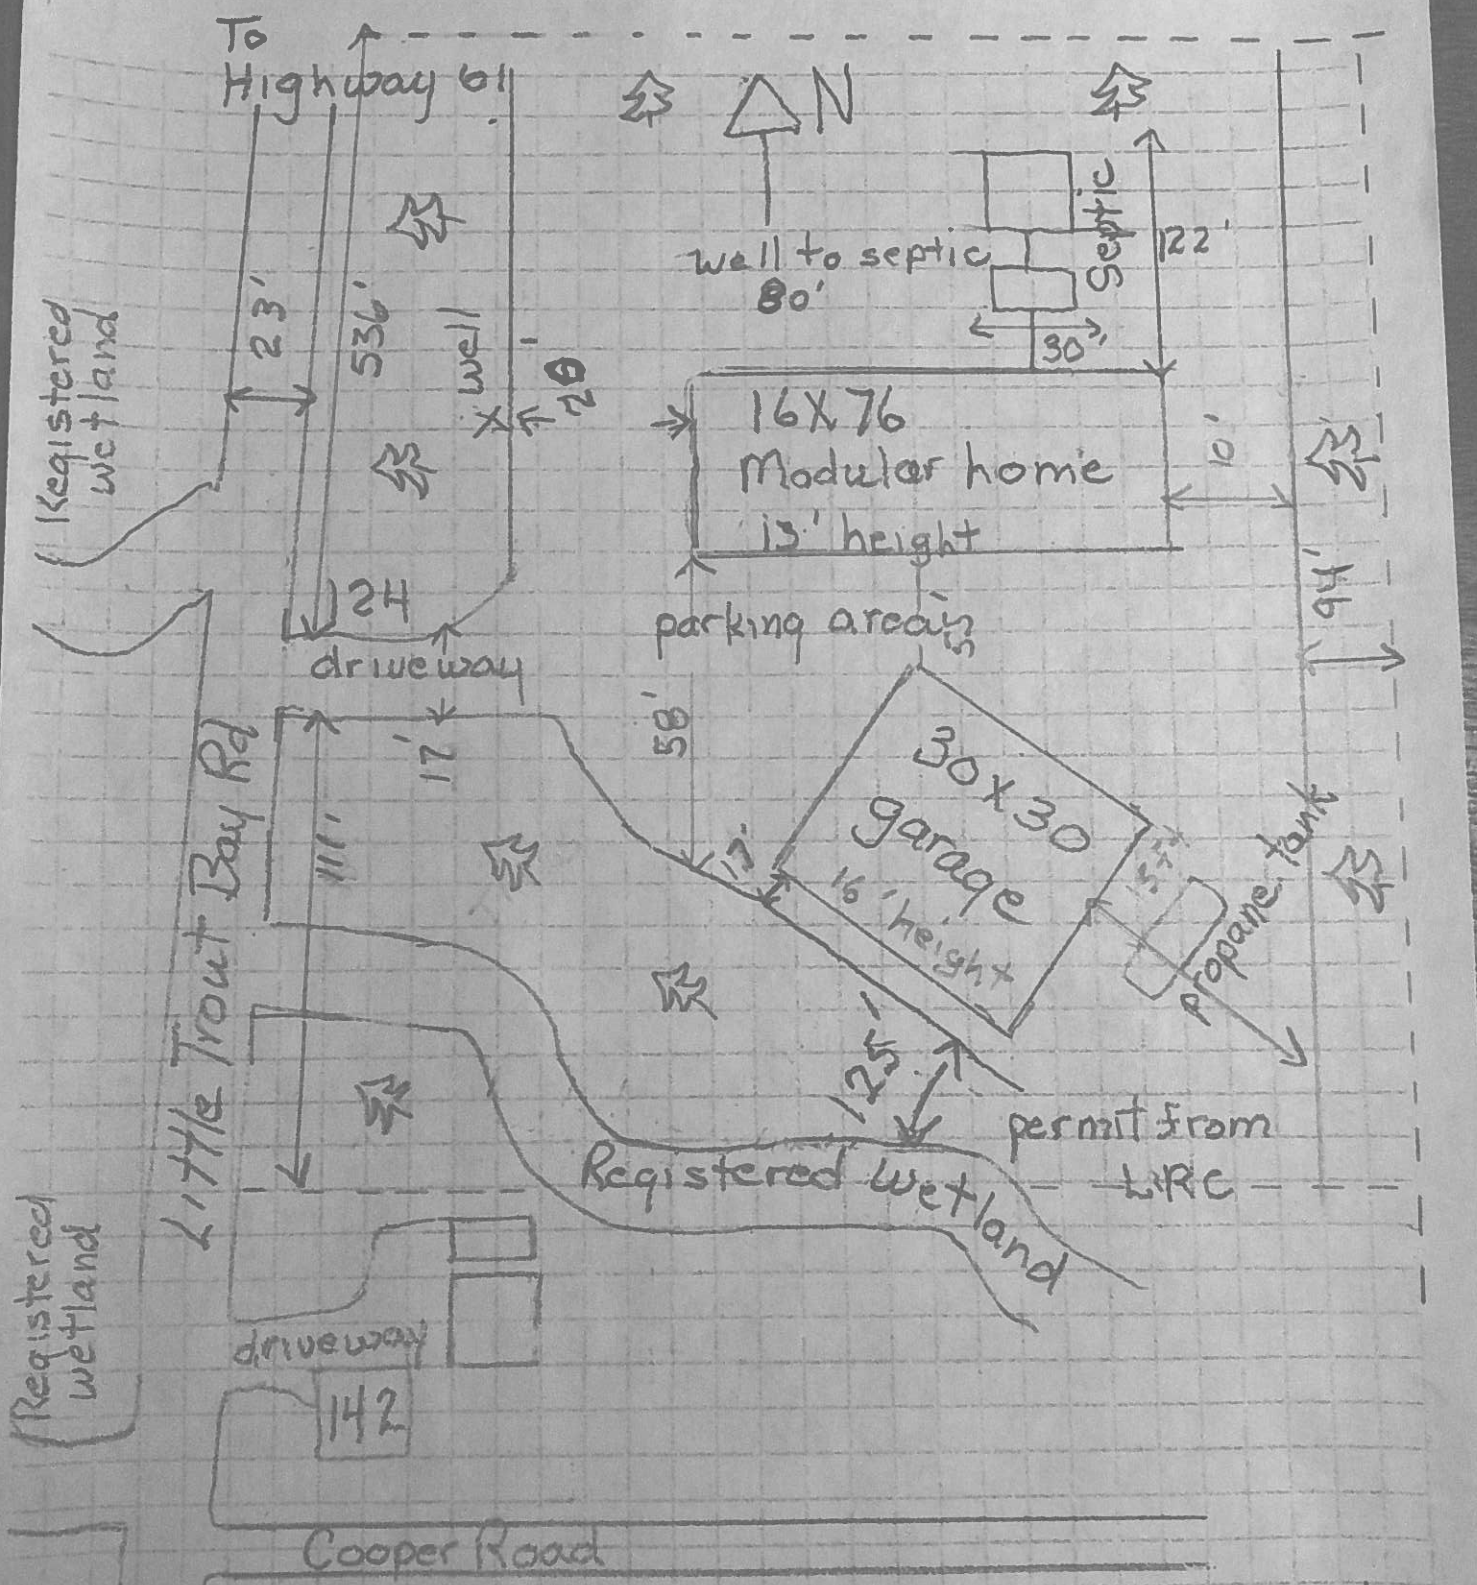 To
Highway 61
N
Septic
122'
well to septic
80'
30'
Registered
wetland
23'
536'
well
X
20
16X76
Modular home
13' height
10'
94'
124
driveway
parking area
5'
17'
58'
Little Trout Bay Rd
111'
30x30
garage
16' height
17'
propane tank
125'
permit from
LRC
Registered wetland
Registered
wetland
driveway
142
Cooper Road